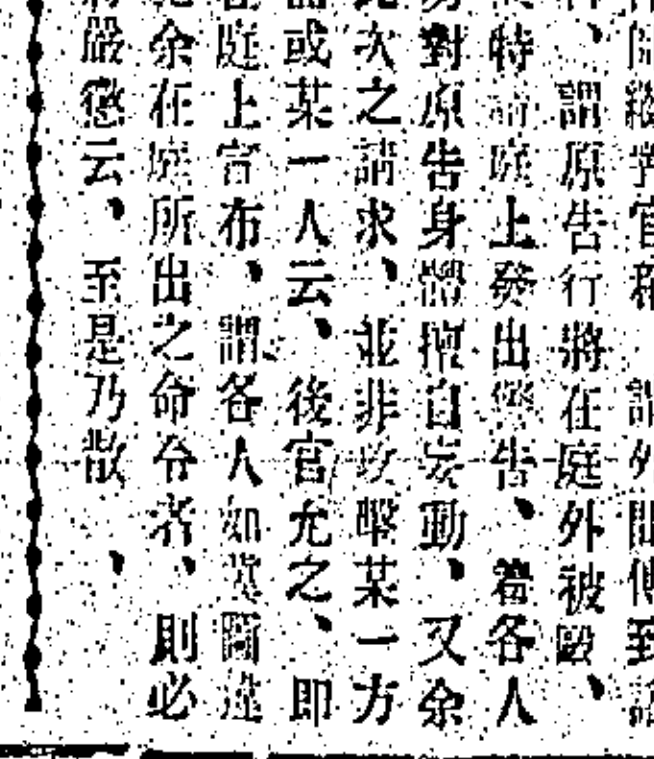 、謂原告行將在庭外被毆、
時請庭上發出警告、着各人
對原告身體擅自妄動、又余
次之請求、並非攻擊某一方
或某一人云、後官允之、即
庭上宣布、謂各人如圖違
余在庭所出之命令者、則必
嚴懲云、至是乃散、